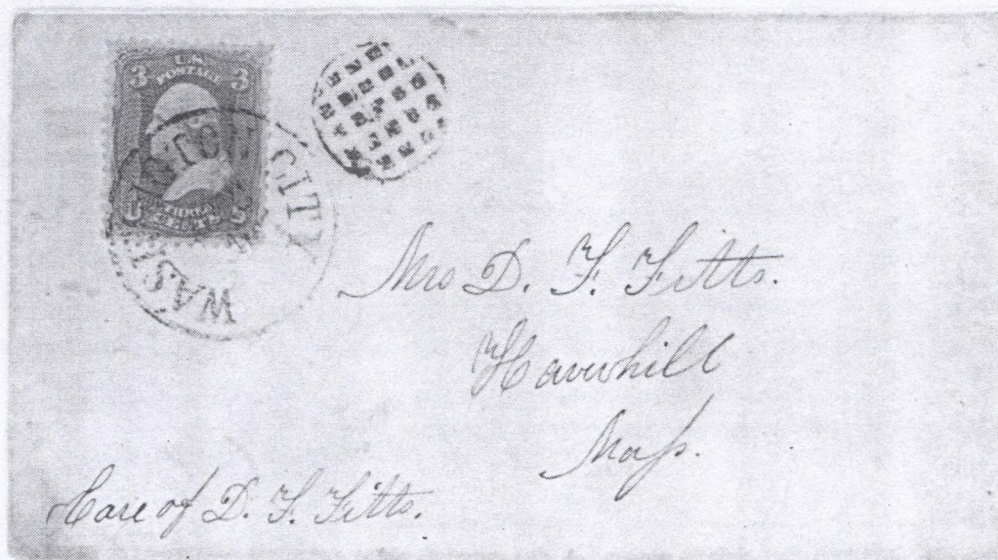 3 3
U.S.
POSTAGE
WASHINGTON CITY
Mrs D. F. Fitts.
Haverhill
Mass.
Care of D. F. Fitts.